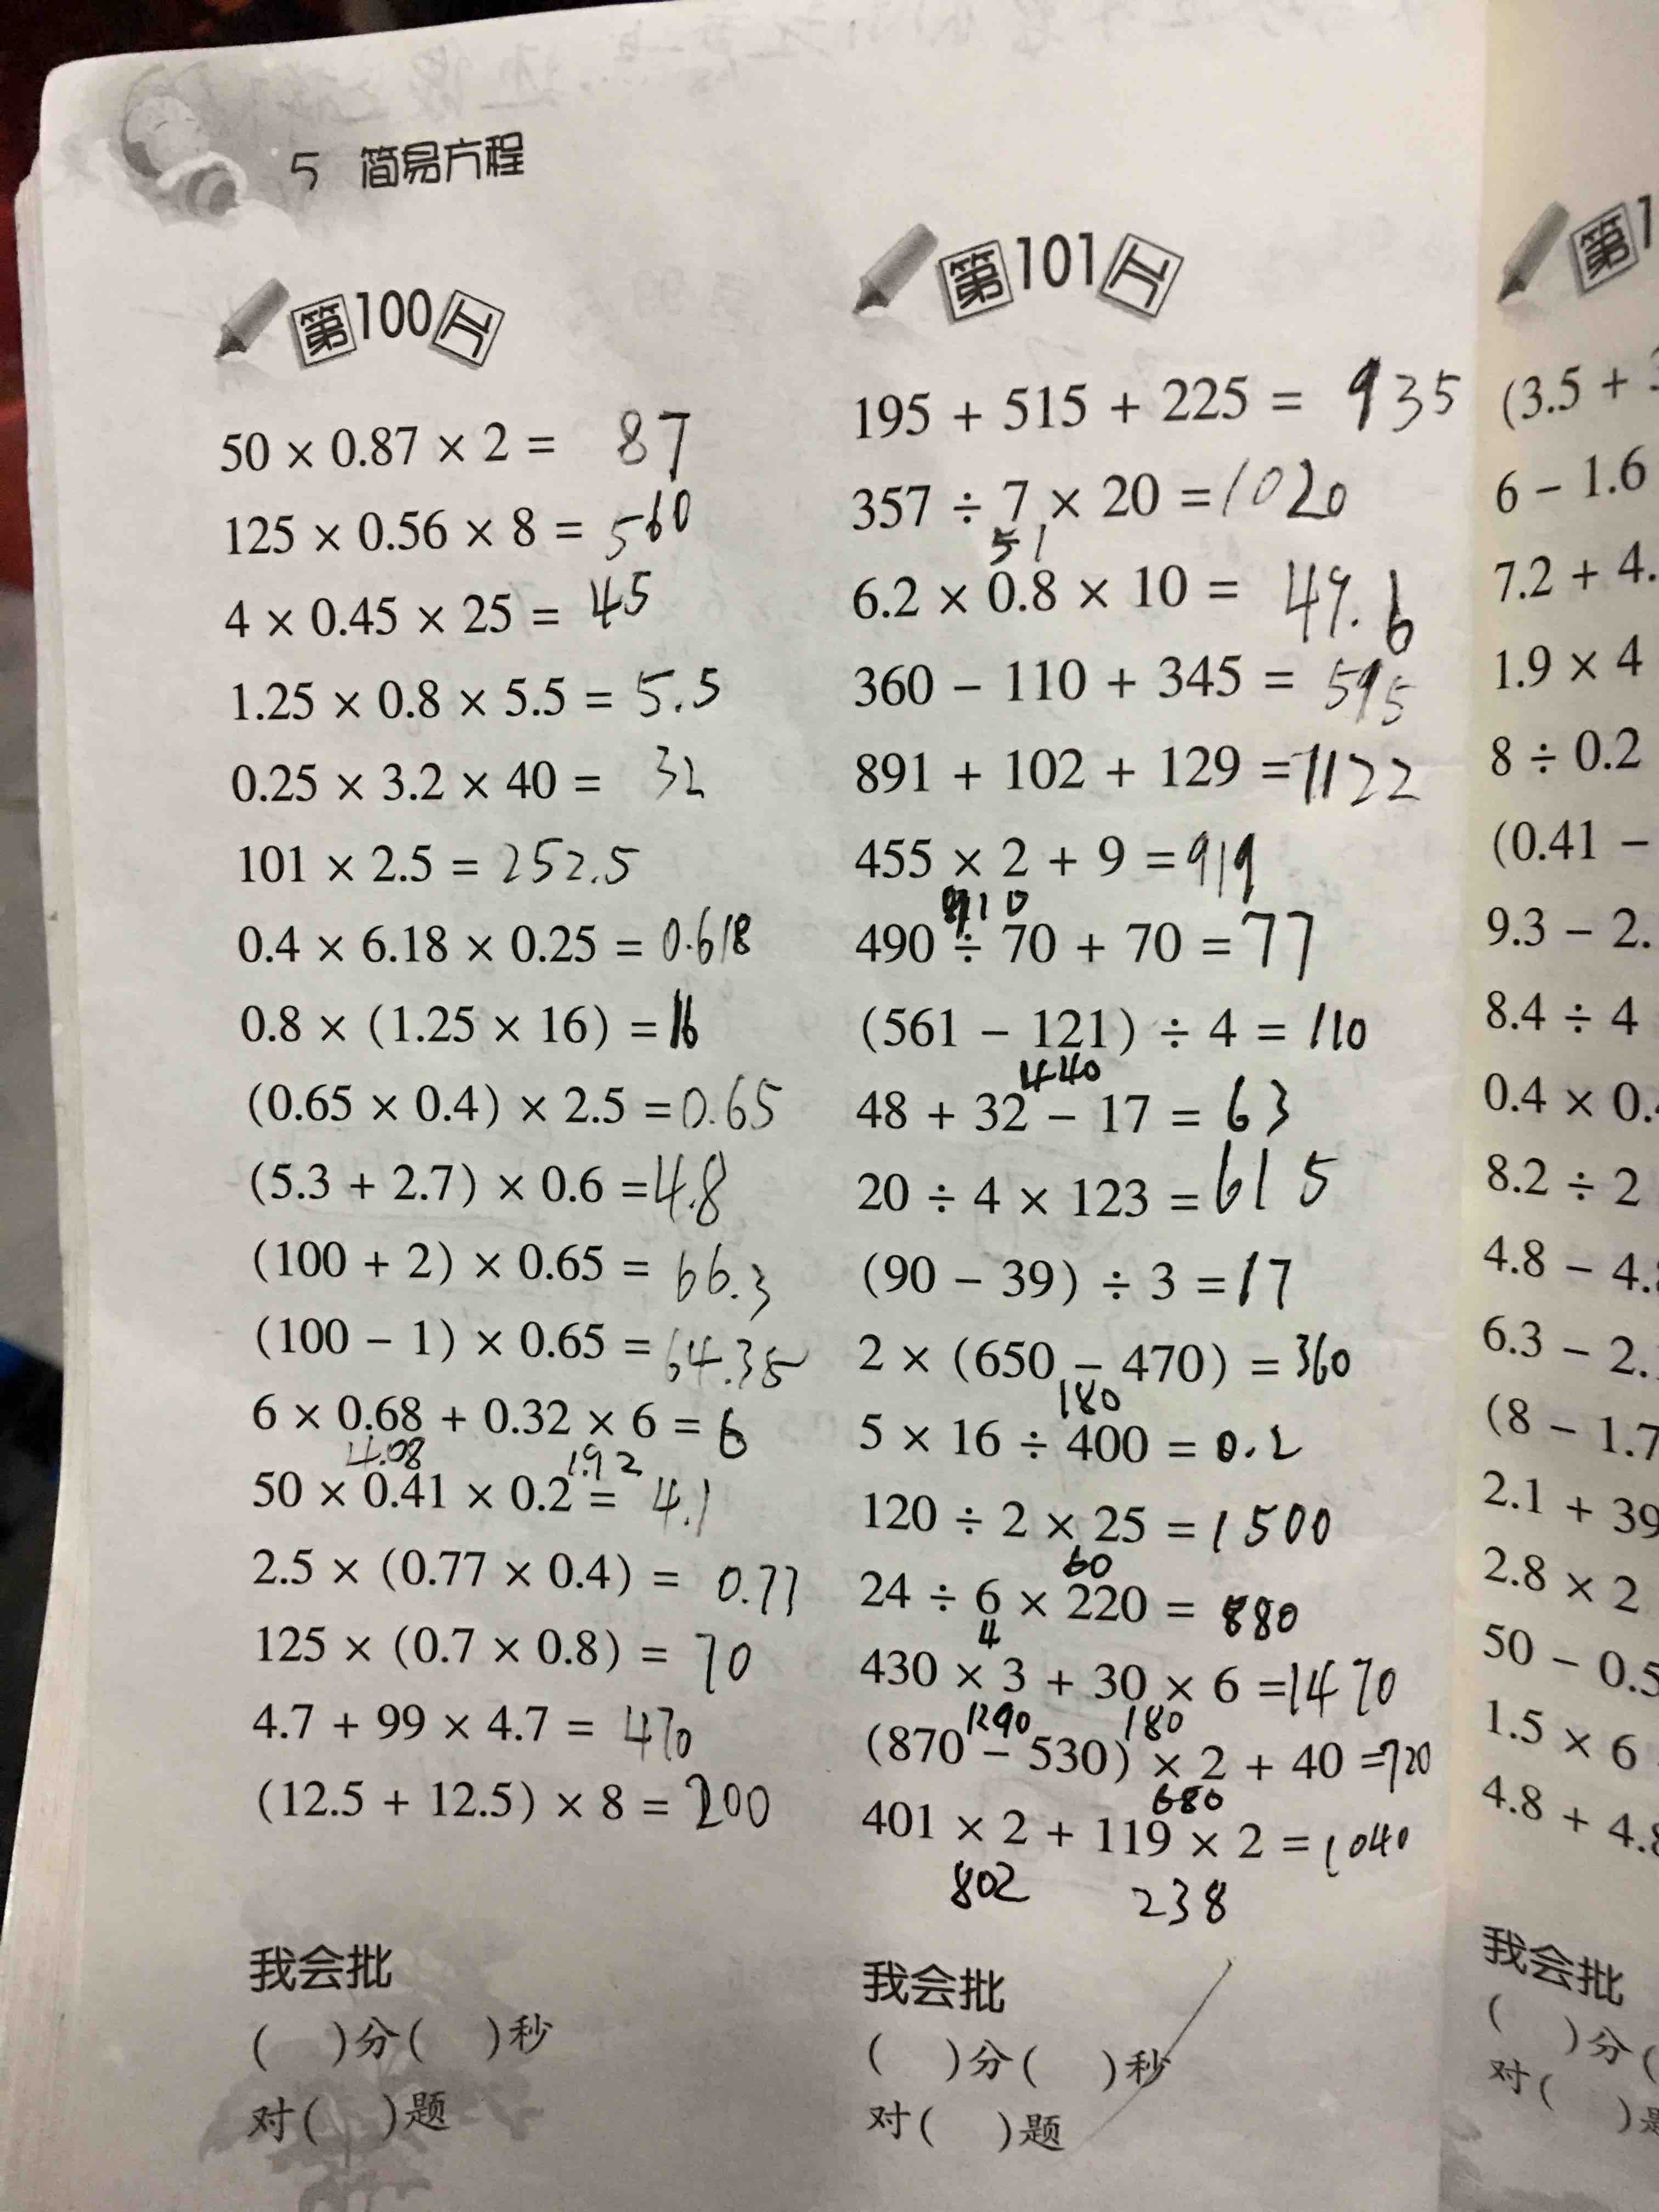 5 简易方程
第100天
50 × 0.87 × 2 = 87
125 × 0.56 × 8 = 560
4 × 0.45 × 25 = 45
1.25 × 0.8 × 5.5 = 5.5
0.25 × 3.2 × 40 = 32
101 × 2.5 = 252.5
0.4 × 6.18 × 0.25 = 0.618
0.8 × (1.25 × 16) = 16
(0.65 × 0.4) × 2.5 = 0.65
(5.3 + 2.7) × 0.6 = 4.8
(100 + 2) × 0.65 = 66.3
(100 − 1) × 0.65 = 64.35
6 × 0.68 + 0.32 × 6 = 6
4.08 1.92
50 × 0.41 × 0.2 = 4.1
2.5 × (0.77 × 0.4) = 0.77
125 × (0.7 × 0.8) = 70
4.7 + 99 × 4.7 = 470
(12.5 + 12.5) × 8 = 200
我会批
( )分( )秒
对( )题
第101天
195 + 515 + 225 = 935
357 ÷ 7 × 20 = 1020
51
6.2 × 0.8 × 10 = 49.6
360 − 110 + 345 = 595
891 + 102 + 129 = 1122
455 × 2 + 9 = 919
910
490 ÷ 70 + 70 = 77
(561 − 121) ÷ 4 = 110
440
48 + 32 − 17 = 63
20 ÷ 4 × 123 = 615
(90 − 39) ÷ 3 = 17
2 × (650 − 470) = 360
180
5 × 16 ÷ 400 = 0.2
120 ÷ 2 × 25 = 1500
60
24 ÷ 6 × 220 = 880
4
430 × 3 + 30 × 6 = 1470
1290 180
(870 − 530) × 2 + 40 = 720
680
401 × 2 + 119 × 2 = 1040
802 238
我会批
( )分( )秒
对( )题
第1
(3.5 +
6 − 1.6
7.2 + 4.
1.9 × 4
8 ÷ 0.2
(0.41 −
9.3 − 2.
8.4 ÷ 4
0.4 × 0.
8.2 ÷ 2
4.8 − 4.
6.3 − 2.
(8 − 1.7
2.1 + 39
2.8 × 2
50 − 0.5
1.5 × 6
4.8 + 4.8
我会批
( )分(
对( )